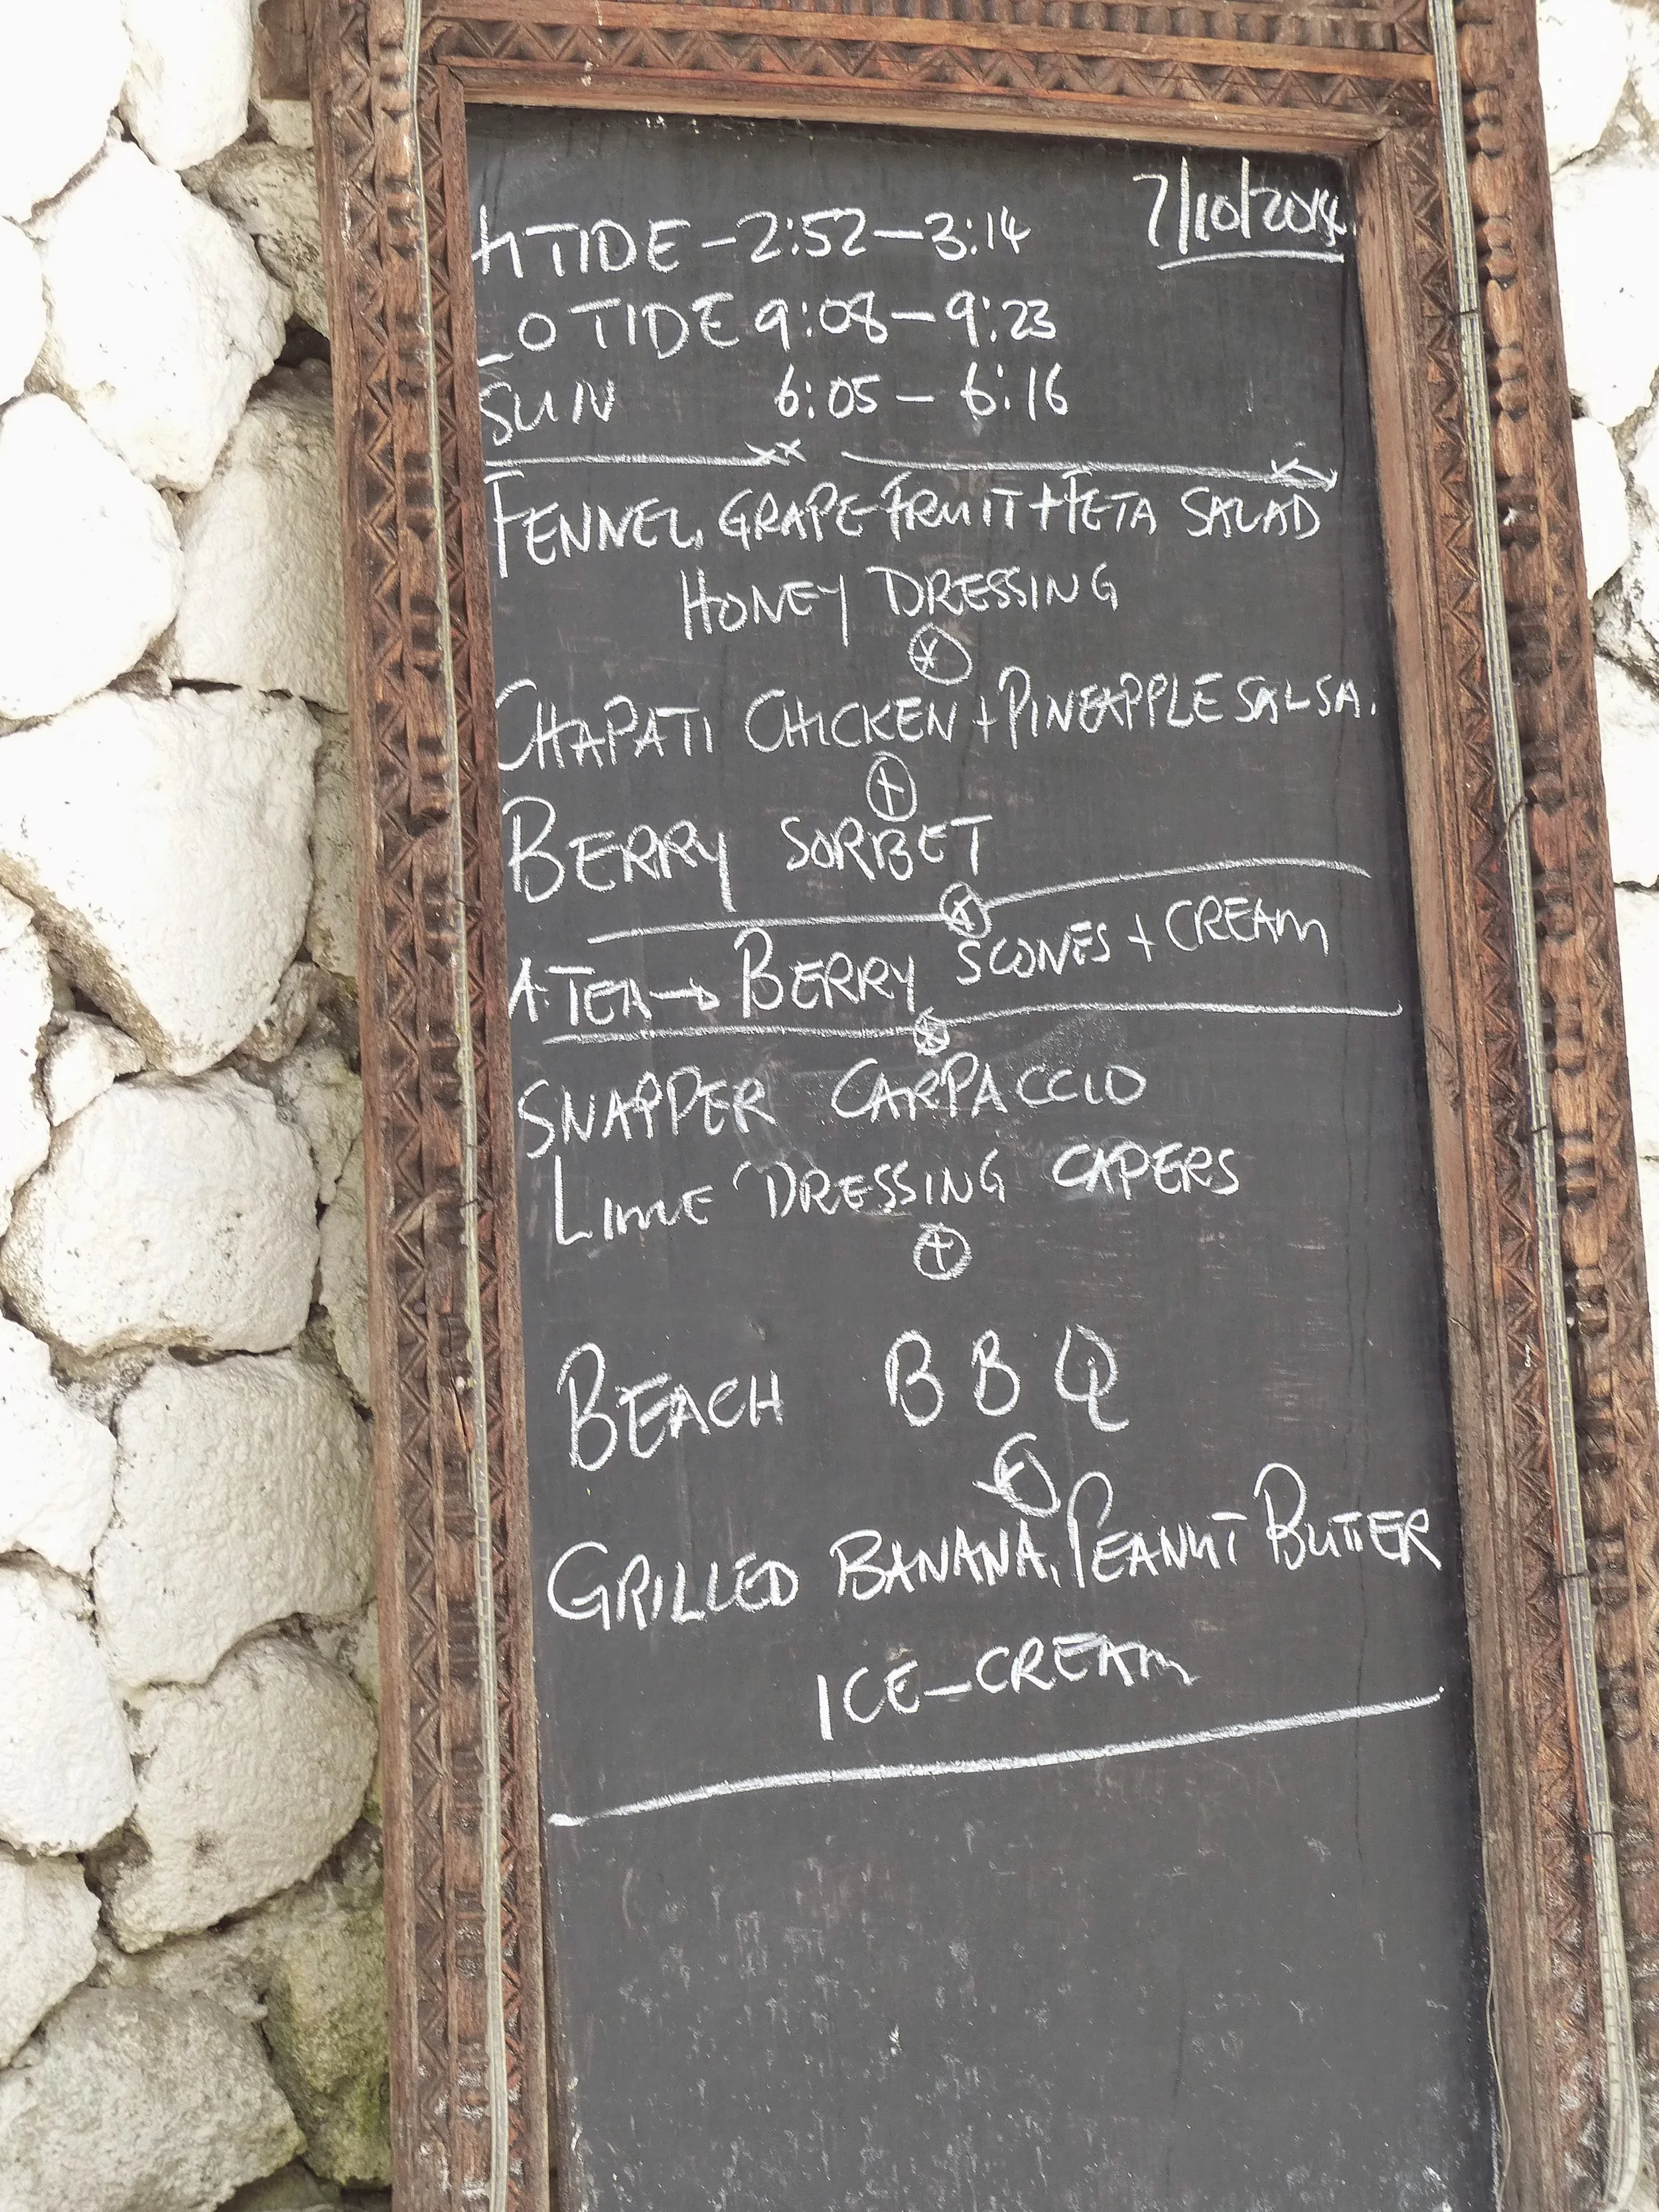 7/10/2014.
H TIDE - 2:52 - 3:14
LO TIDE 9:08 - 9:23
SUN 6:05 - 6:16
FENNEL, GRAPE FRUIT + FETA SALAD
HONEY DRESSING
CHAPATI CHICKEN + PINEAPPLE SALSA.
BERRY SORBET
A. TEA → BERRY SCONES + CREAM
SNAPPER CARPACCIO
LIME DRESSING CAPERS
BEACH BBQ
GRILLED BANANA, PEANUT BUTTER
ICE-CREAM